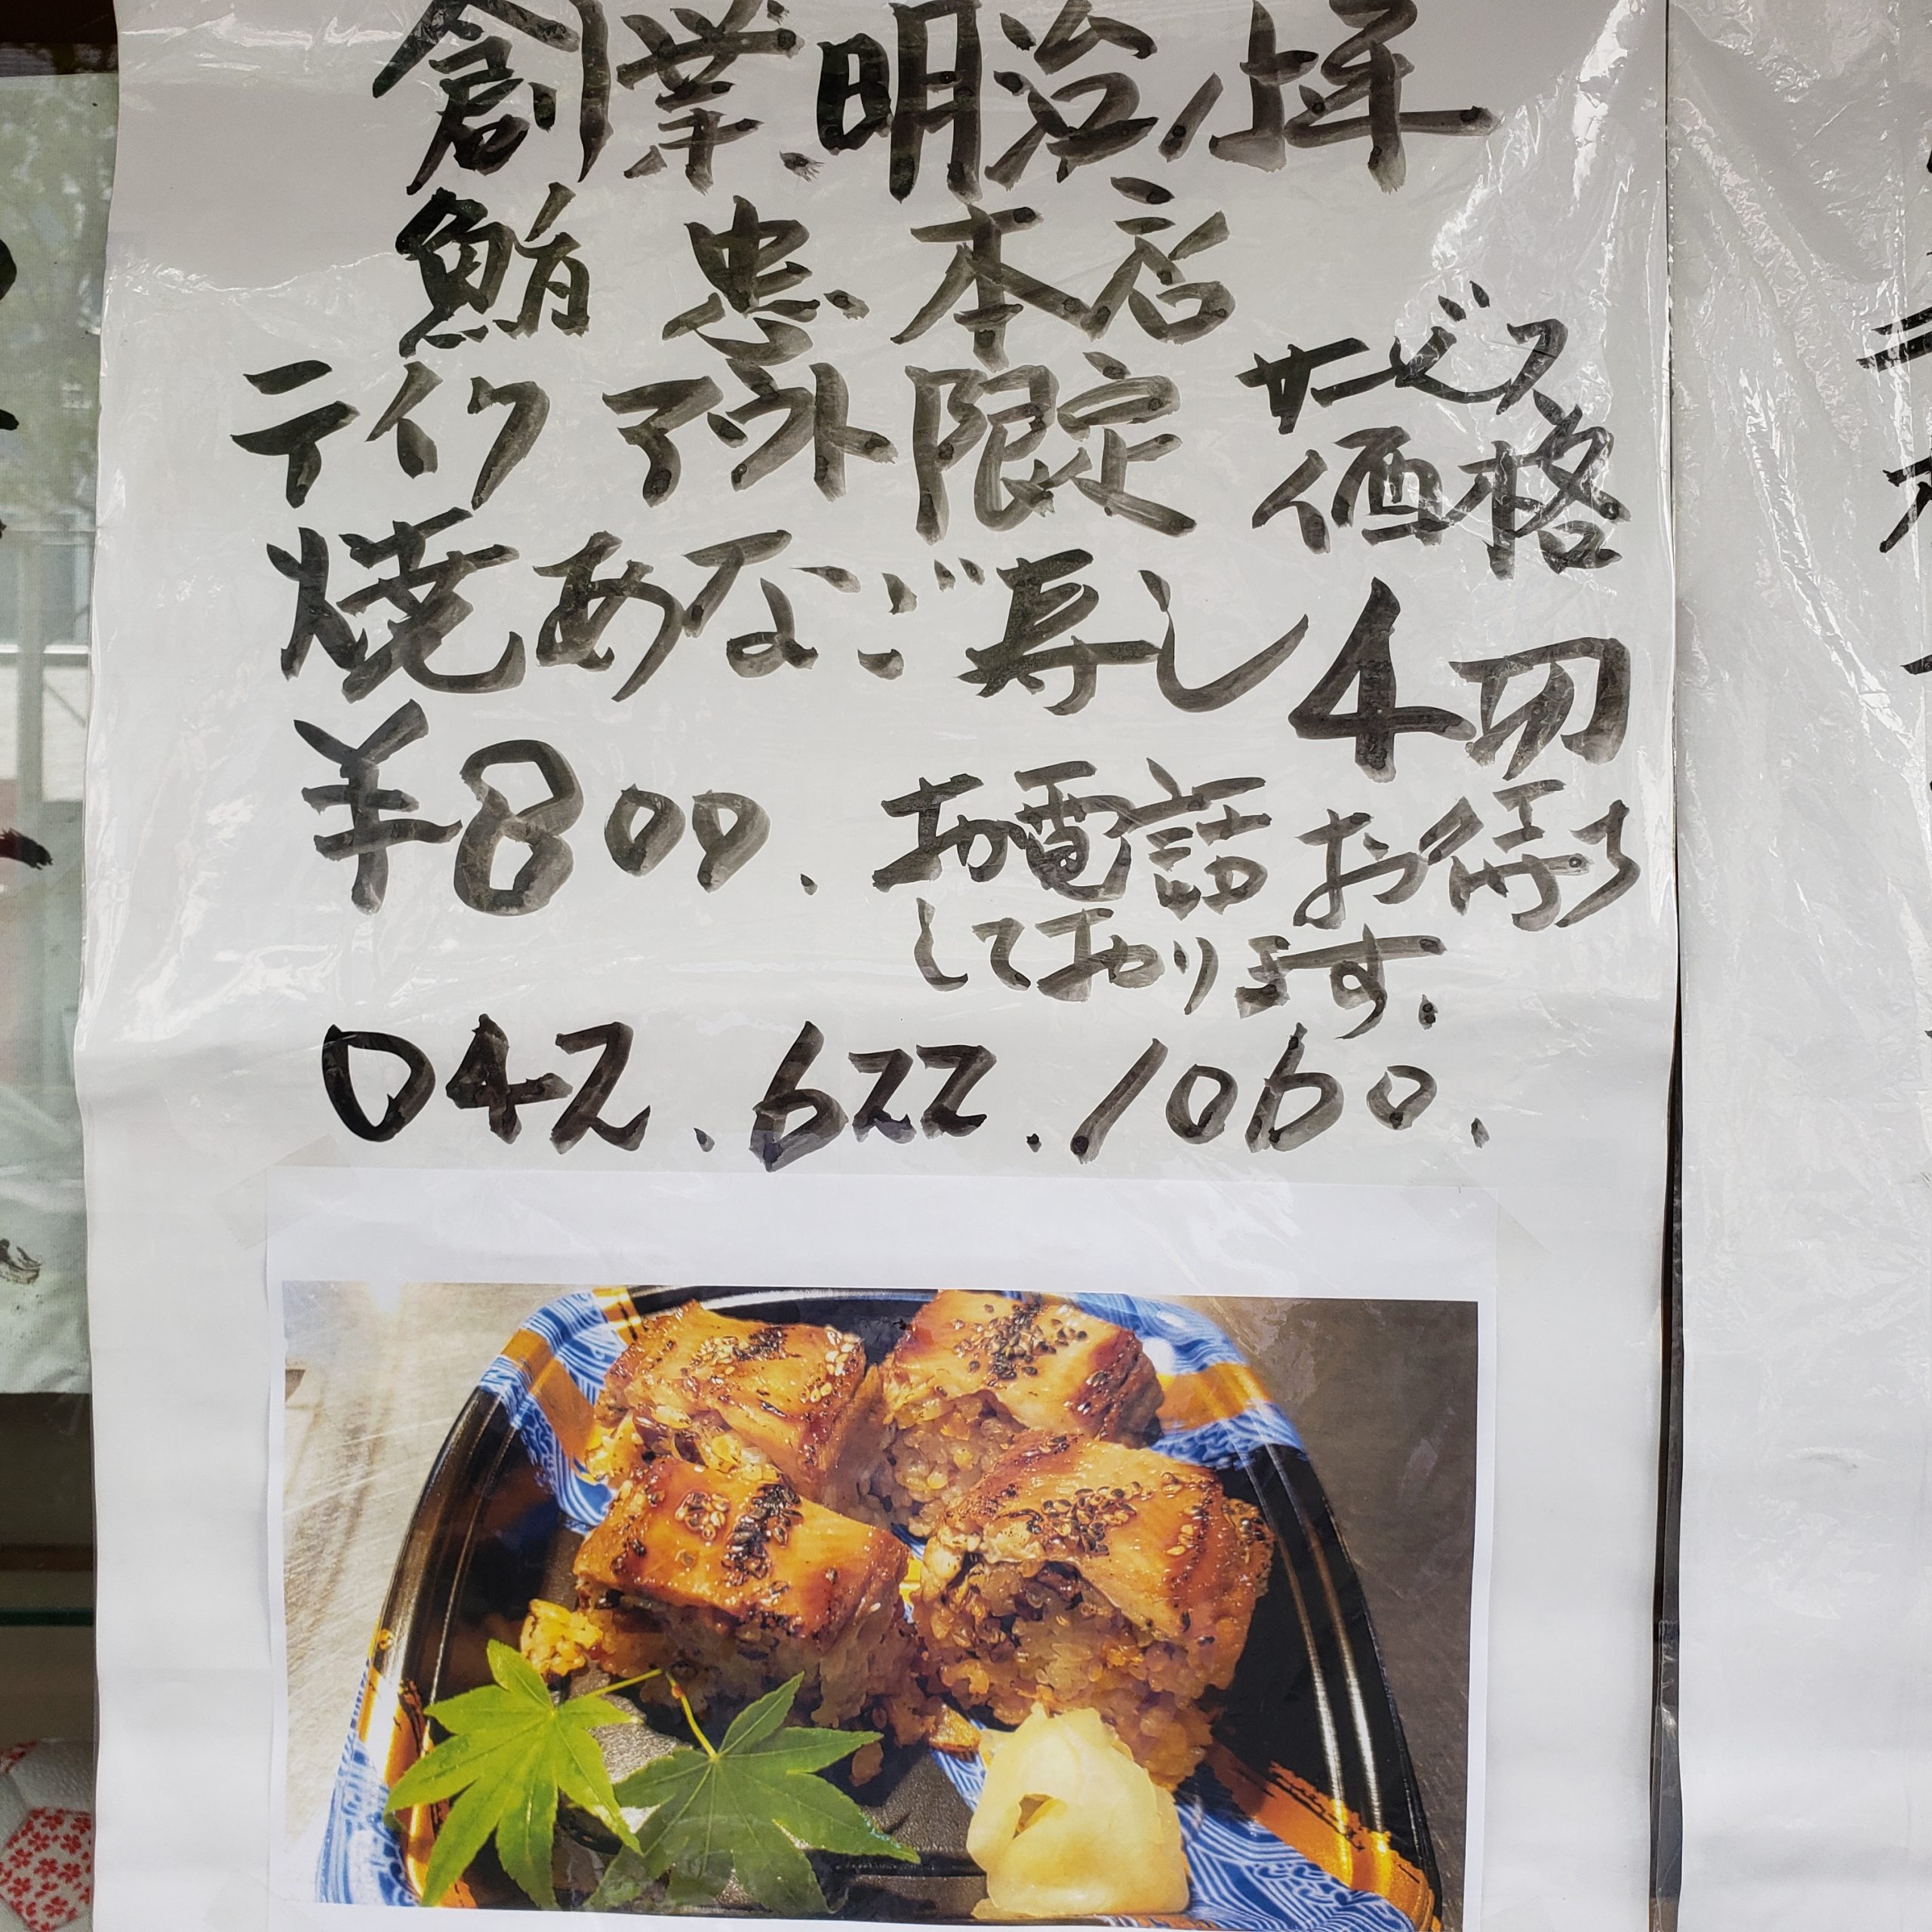 創業明治/上年
鮪忠本店
テイクアウト限定
サービス
価格
焼あなご寿し
4切
¥800.
お電話お待ち
しております.
042.622.1060.